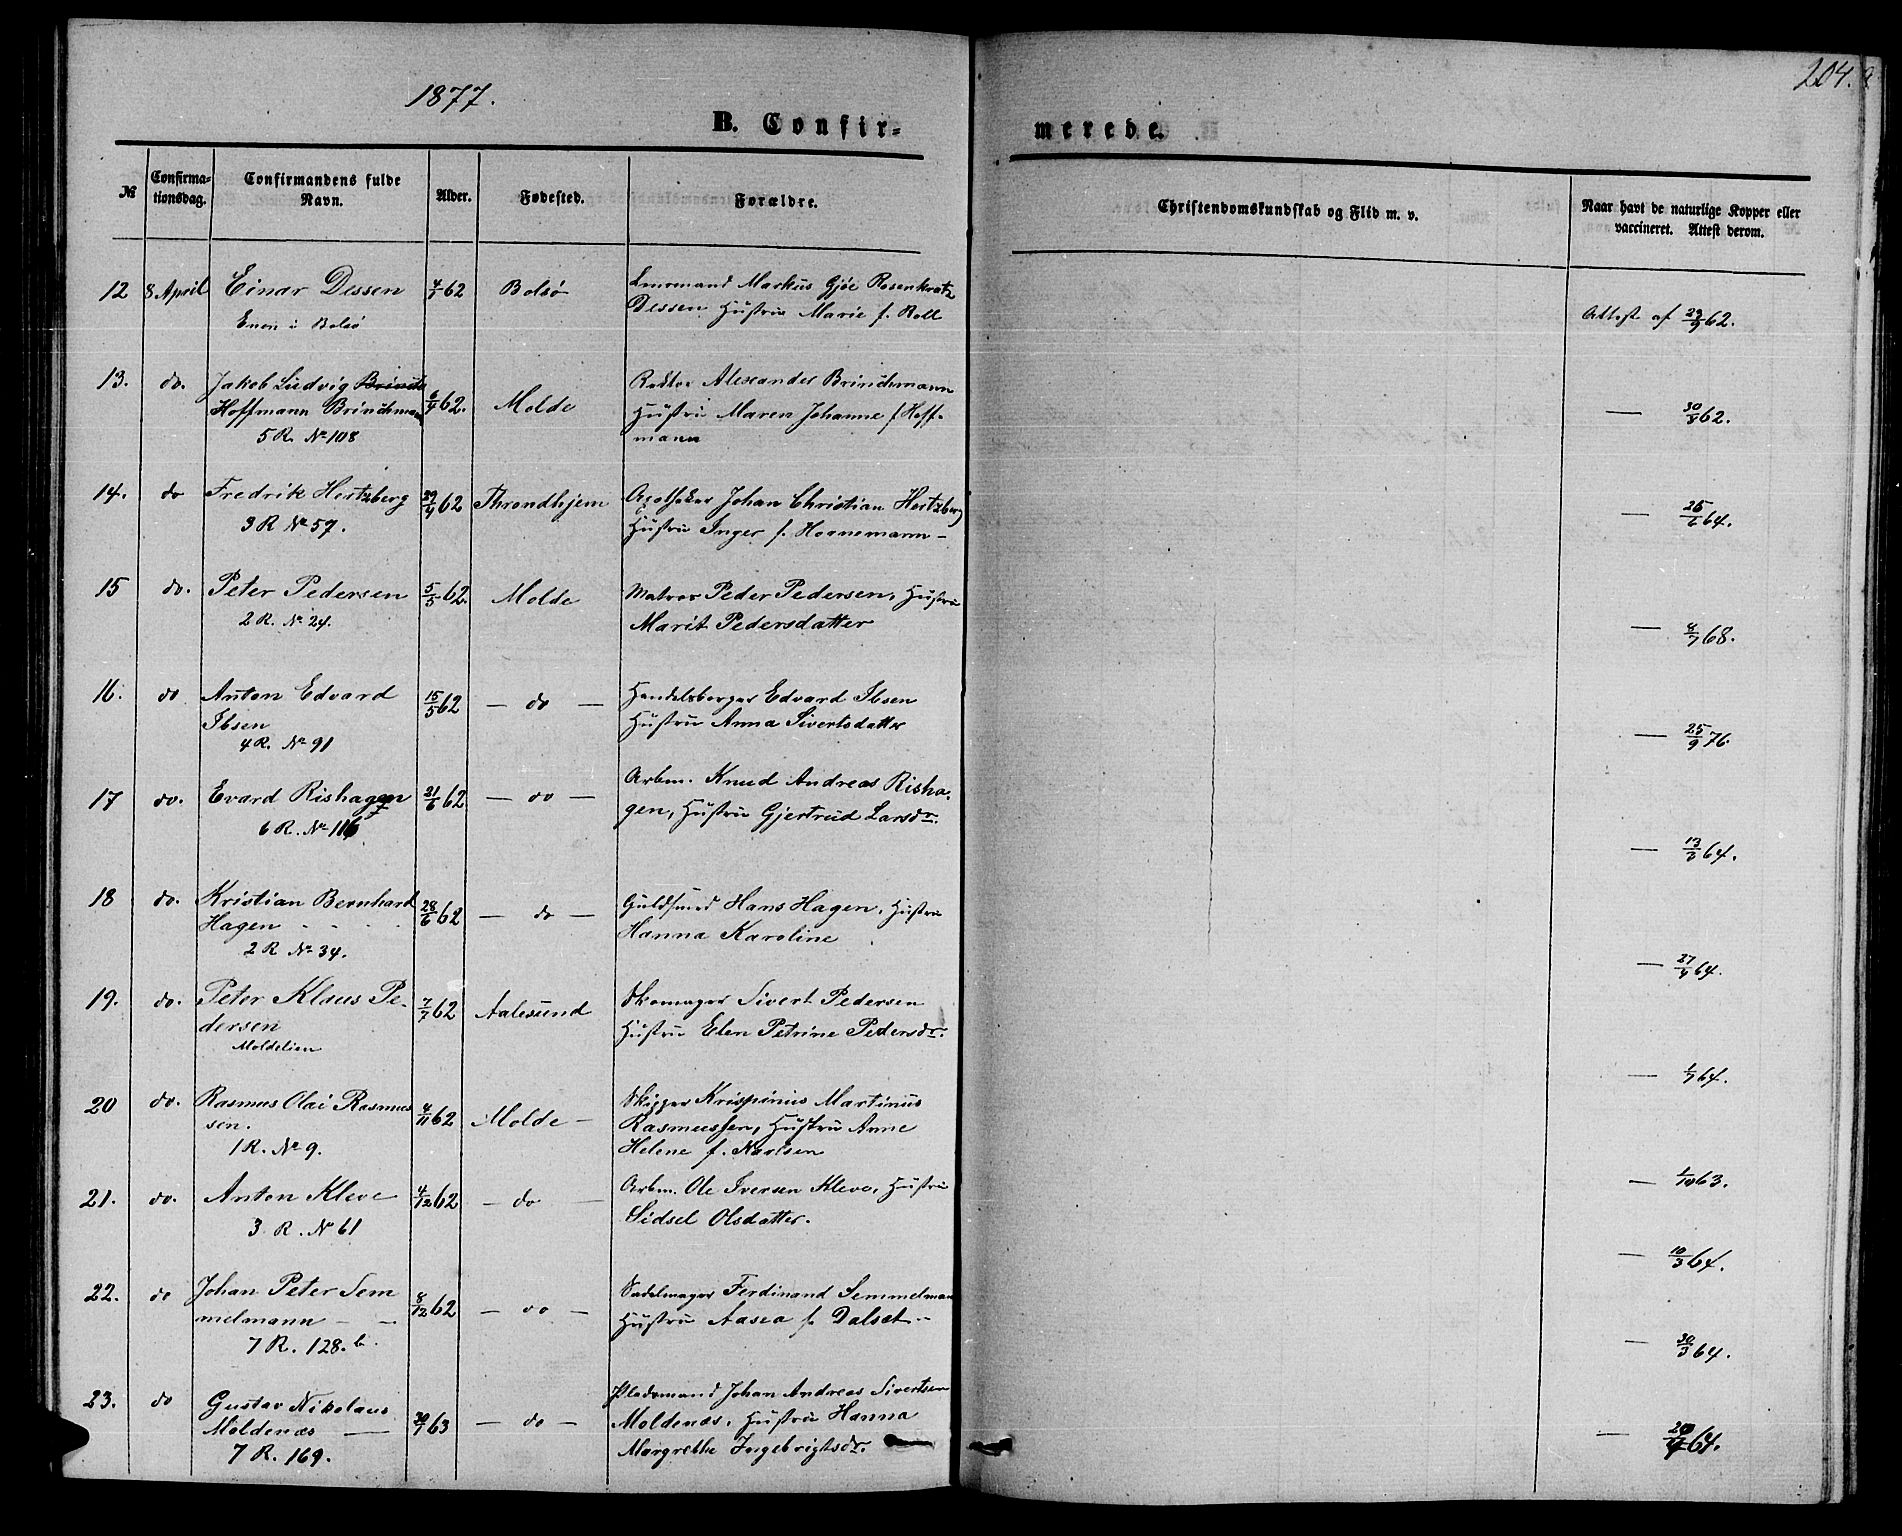 1877.
204.
B. Confir-
merede.
№
Confirma-
tionsdag.
Confirmandens fulde
Navn.
Alder.
Fødested.
Forældre.
Christendomskundskab og Flid m. v.
Naar havt de naturlige Kopper eller
vaccineret. Attest derom.
12 8 April Einar Dessen 62 Bolsø
Markus Gjøe Rosenkratz
Dessen Hustru Marie f. Roll
i Bolsø
Attest af 29/9 62.
13. do. Jakob Ludvig Brinch
Hoffmann Brinchmann 62. Molde
5 R. № 108
Rektor Alexander Brinchmann
Hustru Maren Johanne f Hoff-
mann
— 30/8 62.
14. do Fredrik Hertzberg 29/4 62 Throndhjem
3 R № 57.
Apotheker Johan Christian Hertzberg
Hustru Inger f. Hornemann –
— 64.
15 do. Peter Pedersen 5/5 62. Molde
2 R. № 24.
Matros Peder Pedersen, Hustru
Marit Pedersdatter
— 8/7 68.
16. do Anton Edvard
Ibsen 15/5 62 — do —
4 R. № 91
Handelsborger Edvard Ibsen
Hustru Anna Sivertsdatter
— 25/9 76.
17 do. Evard Rishagen 21/6 62. — do —
6 R. № 116
Arbm. Knud Andreas Risha-
gen, Hustru Gjertrud Larsdr.
— 64.
18 do. Kristian Bernhard
Hagen 28/6 62 — do —
2 R № 34.
Guldsmed Hans Hagen, Hustru
Hanna Karoline
— 64.
19. do. Peter Klaus Pe-
dersen 7/7 62 Aalesund
Moldelien
Skomager Sivert Pedersen
Hustru Elen Petrine Pedersdr.
— 64.
20 do. Rasmus Olai Rasmus
sen. 4/11 62 Molde –
1 R. № 9.
Skipper Krispinus Martinus
Rasmussen, Hustru Anne
Helene f. Karlsen
— 63.
21. do. Anton Kleve 4/12 62 — do —
3 R. № 61
Arbm. Ole Iversen Kleve, Hustru
Sidsel Olsdatter.
— 10/3 64.
22. do Johan Peter Sem
melmann — — 8/12 62 — do —
7 R. 128. b.
Sadelmager Ferdinand Semmelman
Hustru Aasea f. Dalset –
— 30/3 64.
23. do Gustav Nikolaus
Moldenæs — 63 — do —
7 R. 169.
Pladsmand Johan Andreas Sivertsen
Moldenæs, Hustru Hanna
Margrethe Ingebrigtsdr.
— 64.